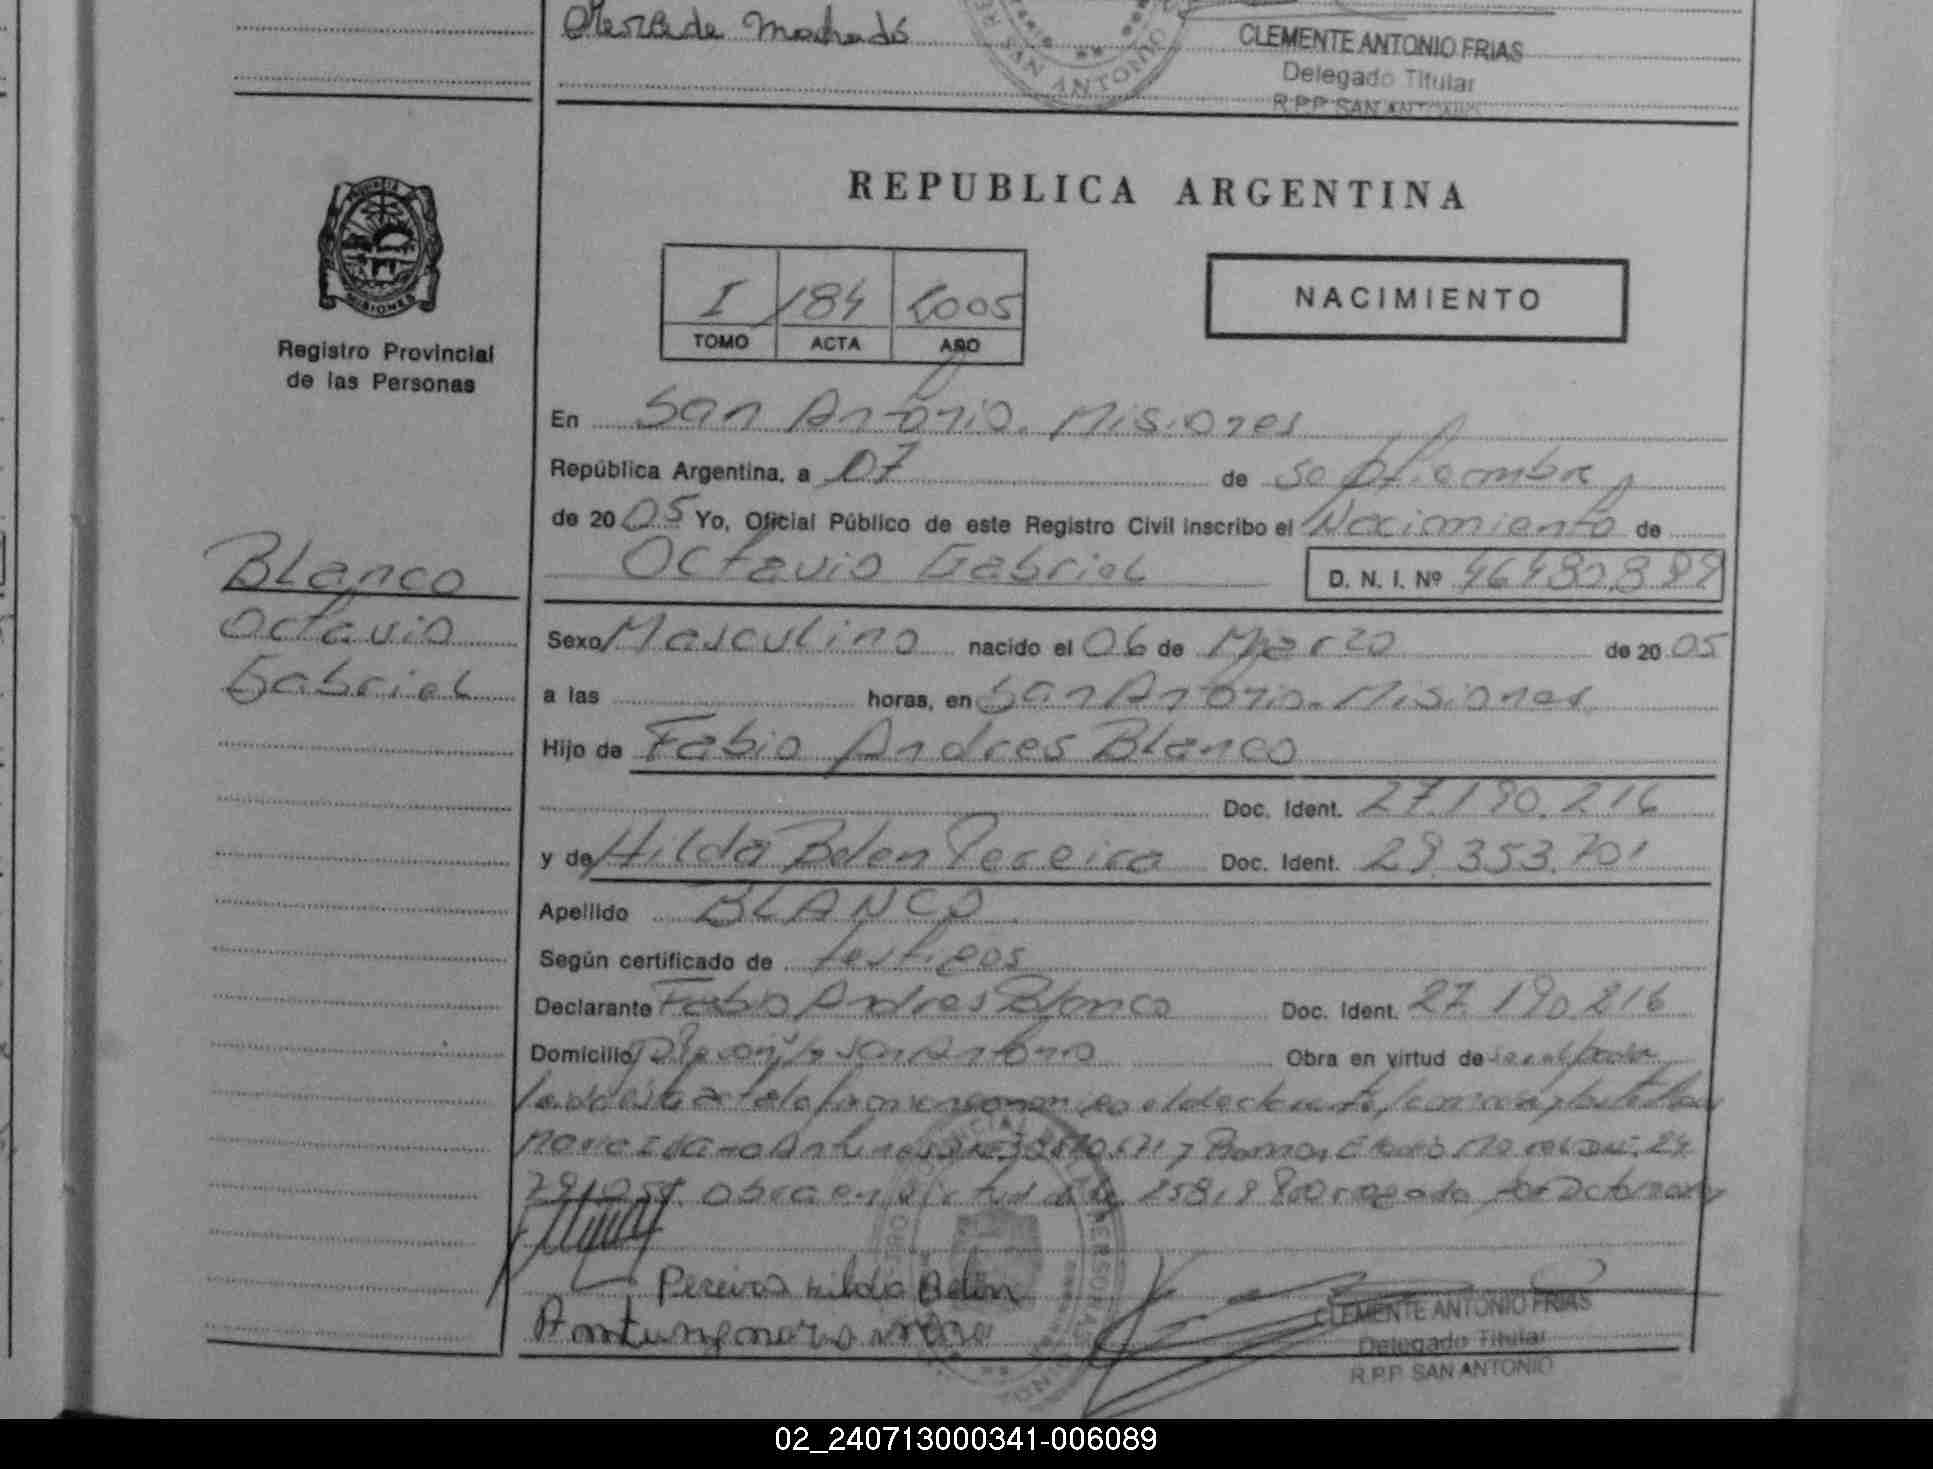 Mercede Machado
SAN ANTONIO
CLEMENTE ANTONIO FRIAS
Delegado Titular
R.P.P. SAN ANTONIO
REPUBLICA ARGENTINA
PROVINCIA
MISIONES
Registro Provincial
de las Personas
I 184 2005
TOMO ACTA AÑO
NACIMIENTO
En San Antonio. Misiones
República Argentina, a 07 de septiembre
de 2005 Yo, Oficial Público de este Registro Civil inscribo el Nacimiento de
Octavio Gabriel D. N. I. Nº
Blanco
Octavio
Gabriel
Sexo Masculino nacido el 06 de Marzo de 2005
a las horas, en San Antonio. Misiones
Hijo de Fabio Andres Blanco
Doc. Ident. 27.190.216
y de Hilda Belen Pereira Doc. Ident. 29.353.701
Apellido BLANCO
Según certificado de testigos
Declarante Fabio Andres Blanco Doc. Ident. 27.190.216
Domicilio San Antonio Obra en virtud de
leida esta acta la firman el declarante
Obra en virtud
Pereira Hilda Belen
CLEMENTE ANTONIO FRIAS
Delegado Titular
R.P.P. SAN ANTONIO
02_240713000341-006089